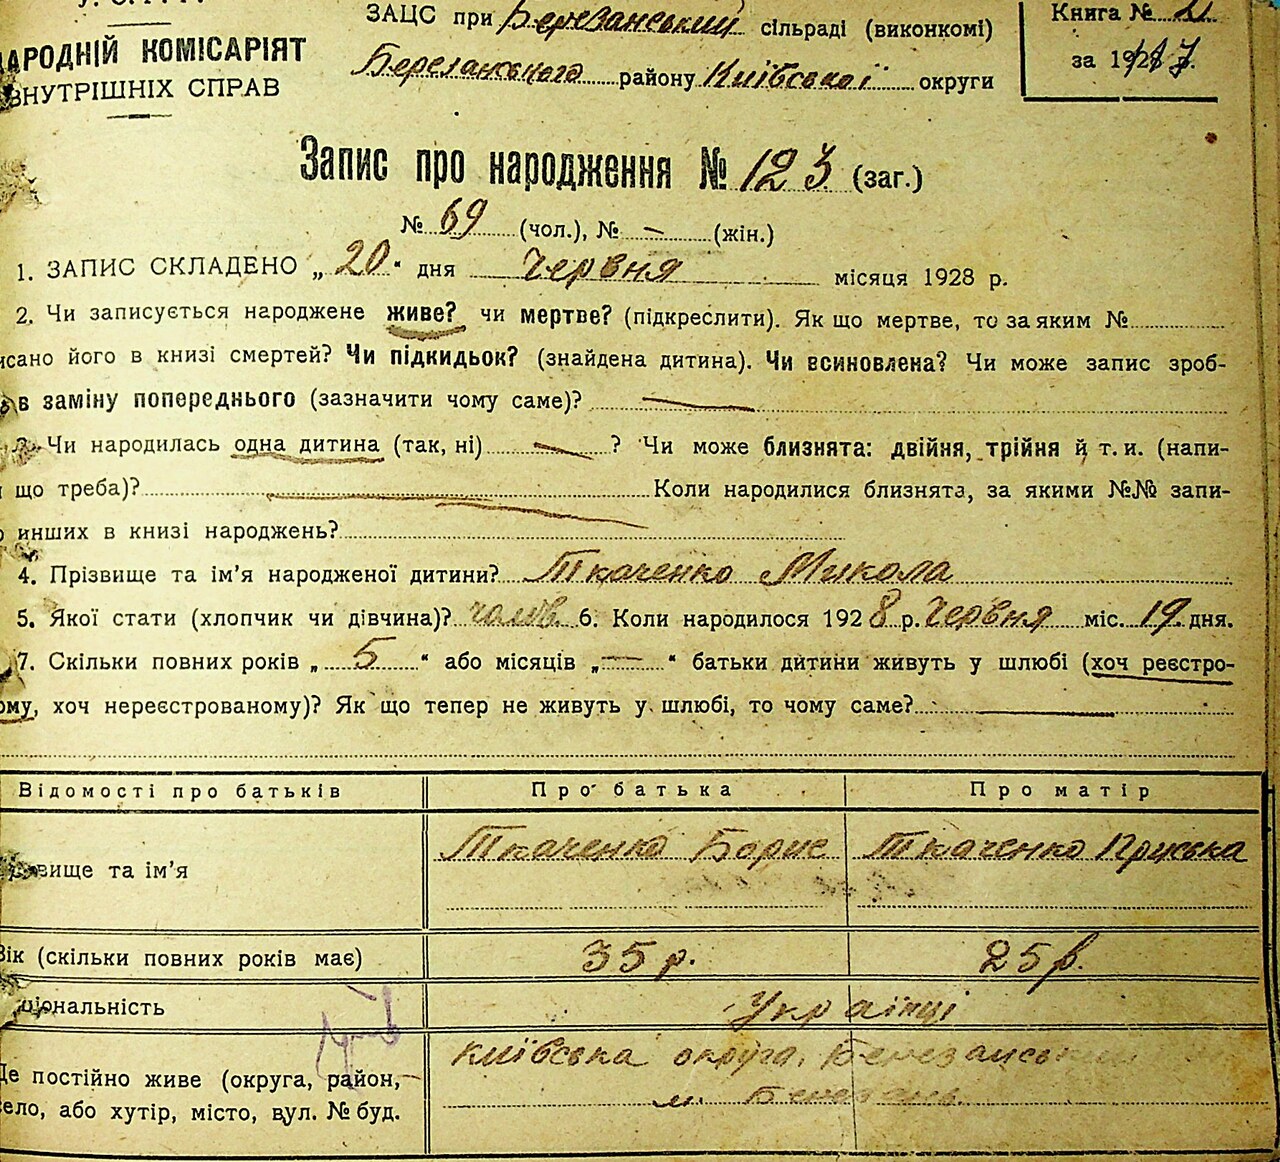 У. С. Р. Р.
ЗАЦС при Березанський сільраді (виконкомі)
Книга № 2
АРОДНІЙ КОМІСАРІЯТ
ВНУТРІШНІХ СПРАВ
Березанського району Київської округи
за 192
Запис про народження № 123 (заг.)
№ 69 (чол.), № — (жін.)
1. ЗАПИС СКЛАДЕНО „20“ дня Червня місяця 1928 р.
2. Чи записується народжене живе? чи мертве? (підкреслити). Як що мертве, то за яким №
исано його в книзі смертей? Чи підкидьок? (знайдена дитина). Чи всиновлена? Чи може запис зроб-
в заміну попереднього (зазначити чому саме)? —
3. Чи народилась одна дитина (так, ні) — ? Чи може близнята: двійня, трійня й т. и. (напи-
що треба)? — Коли народилися близнята, за якими №№ запи-
инших в книзі народжень?
4. Прізвище та ім'я народженої дитини? Ткаченко Микола
5. Якої стати (хлопчик чи дівчина)? чолов. 6. Коли народилося 1928 р. Червня міс. 19 дня.
7. Скільки повних років „5“ або місяців „—“ батьки дитини живуть у шлюбі (хоч реєстро-
ому, хоч нереєстрованому)? Як що тепер не живуть у шлюбі, то чому саме? —
Відомості про батьків Про батька Про матір
звище та ім'я Ткаченко Борис Ткаченко Пруська
Вік (скільки повних років має) 35 р. 25 р.
ціональність Українці
Де постійно живе (округа, район, Київська округа, Березанськ
ело, або хутір, місто, вул. № буд. м. Березань